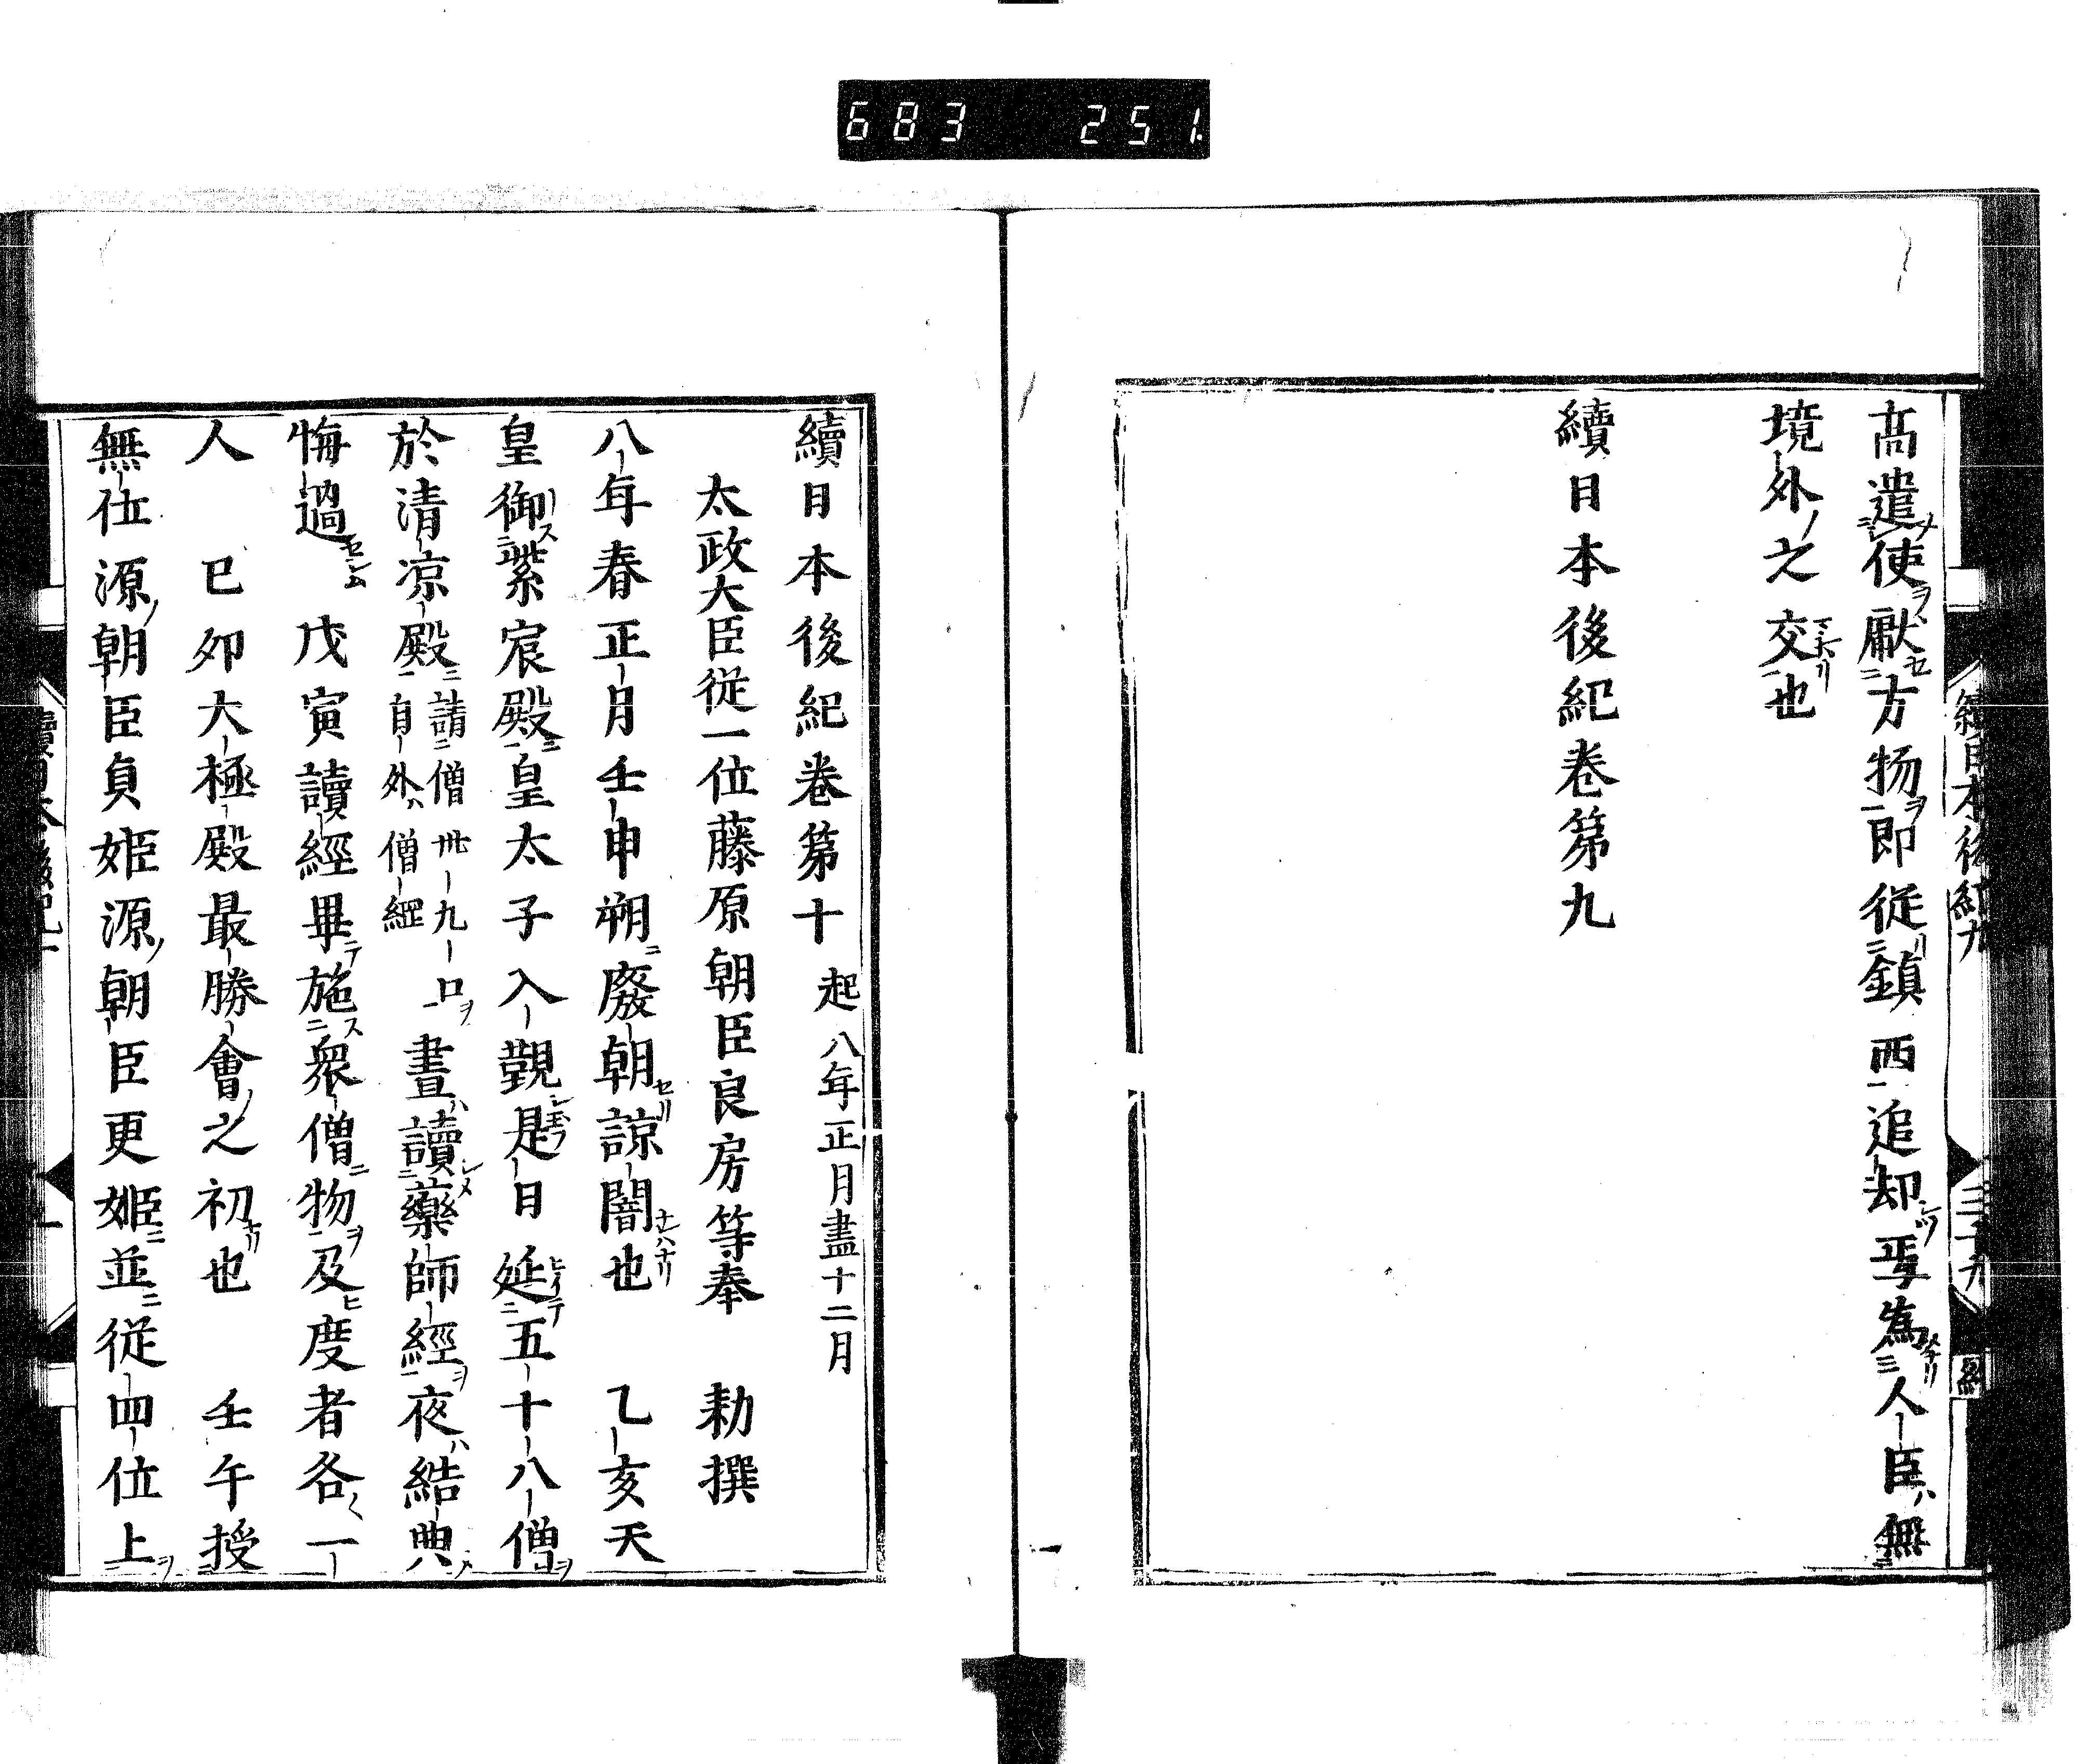 683 251
高遣使獻方物即從鎮西追却焉為人臣無
境外之交也
續日本後紀卷第九
續日本後紀卷第十 起八年正月盡十二月
太政大臣從一位藤原朝臣良房等奉 勅撰
八年春正月壬申朔廢朝諒闇也 乙亥天
皇御紫宸殿皇太子入觀是日延五十八僧
於清凉殿請僧卅九口自外僧綱晝讀藥師經夜結典
悔過 戊寅讀經畢施衆僧物及度者各一
人 巳卯大極殿最勝會之初也 壬午授
無位源朝臣貞姫源朝臣更姫並從四位上